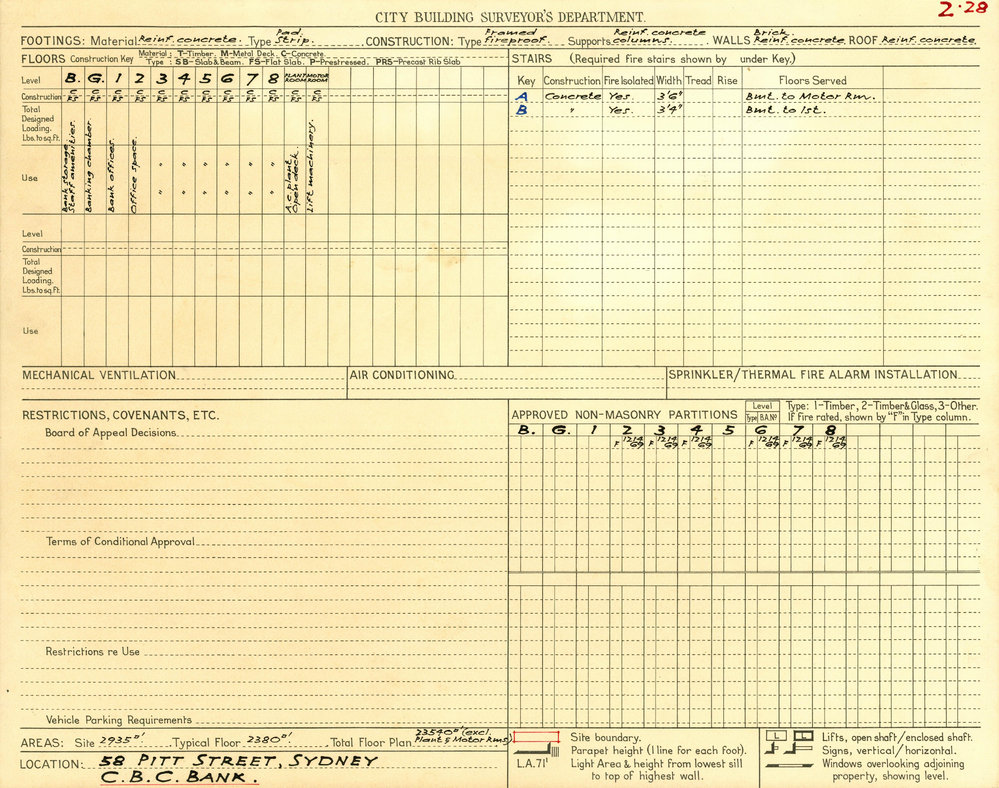 2.28
CITY BUILDING SURVEYOR'S DEPARTMENT.
FOOTINGS: Material Reinf. concrete. Type Pad. Strip. CONSTRUCTION: Type Framed Fireproof. Supports Reinf. concrete columns. WALLS Brick. Reinf. concrete ROOF Reinf. concrete
FLOORS Construction Key Material: T-Timber. M-Metal Deck. C-Concrete.
Type: SB-Slab & Beam. FS-Flat Slab. P-Prestressed. PRS-Precast Rib Slab
Level B. G. 1 2 3 4 5 6 7 8 PLANT ROOM MOTOR ROOM
Construction C FS C FS C FS C FS C FS C FS C FS C FS C FS C FS C FS C FS
Total Designed Loading. Lbs. to sq. ft.
Use
Bank storage. Staff amenities.
Banking chamber.
Bank offices.
Office space.
" " " " " "
" " " " " "
A.C. plant Open deck.
Lift machinery.
Level
Construction
Total Designed Loading. Lbs. to sq. ft.
Use
STAIRS (Required fire stairs shown by under Key.)
Key Construction Fire Isolated Width Tread Rise Floors Served
A Concrete Yes. 3'6" Bmt. to Motor Rm.
B " Yes. 3'4" Bmt. to 1st.
MECHANICAL VENTILATION
AIR CONDITIONING
SPRINKLER/THERMAL FIRE ALARM INSTALLATION
RESTRICTIONS, COVENANTS, ETC.
Board of Appeal Decisions
Terms of Conditional Approval
Restrictions re Use
Vehicle Parking Requirements
APPROVED NON-MASONRY PARTITIONS Level Type B.A.Nº Type: 1-Timber, 2-Timber & Glass, 3-Other.
If Fire rated, shown by "F" in Type column.
B. G. 1 2 3 4 5 6 7 8
F 1214/69 F 1214/69 F 1214/69 F 1214/69 F 1214/69 F 1214/69
AREAS: Site 2935□' Typical Floor 2380□' Total Floor Plan 23540□' (excl. Plant & Motor Rms)
LOCATION: 58 PITT STREET, SYDNEY
C.B.C. BANK.
Site boundary.
Parapet height (1 line for each foot).
L.A.71' Light Area & height from lowest sill
to top of highest wall.
L L Lifts, open shaft/enclosed shaft.
Signs, vertical/horizontal.
Windows overlooking adjoining
property, showing level.